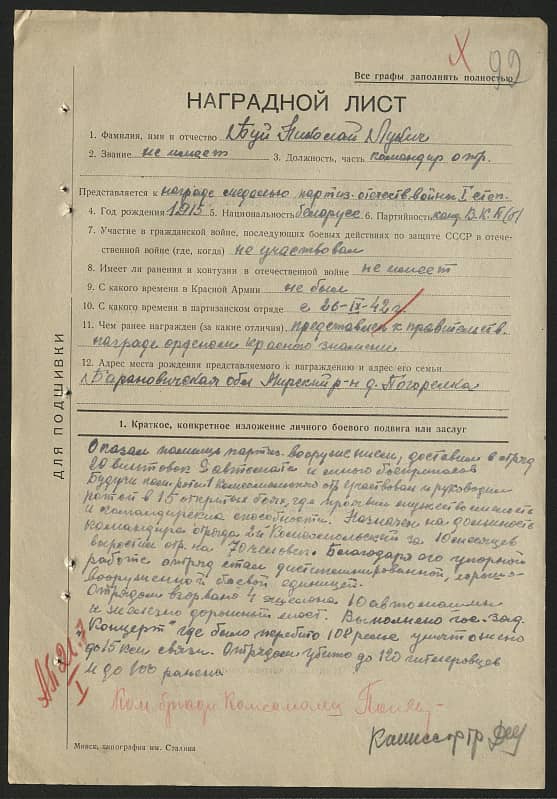 Х 92
Все графы заполнять полностью
НАГРАДНОЙ ЛИСТ
1. Фамилия, имя и отчество Буй Николай Лукич
2. Звание не имеет 3. Должность, часть командир отр.
Представляется к награде медалью партиз. отечеств. войны I степ.
4. Год рождения 1915 5. Национальность беларусс 6. Партийность канд. В.К.П(б)
7. Участие в гражданской войне, последующих боевых действиях по защите СССР в отече-
ственной войне (где, когда) не участвовал
8. Имеет ли ранения и контузии в отечественной войне не имеет
9. С какого времени в Красной Армии не был
10. С какого времени в партизанском отряде с 26-IX-42 г.
11. Чем ранее награжден (за какие отличия) представлен к правительств.
награде орденом красного знамени
12. Адрес места рождения представляемого к награждению и адрес его семьи
Барановическая обл Мирский р-н д. Погорелка
ДЛЯ ПОДШИВКИ
1. Краткое, конкретное изложение личного боевого подвига или заслуг
Оказал помощь партиз. вооружением, доставил в отряд
20 винтовок 3 автомата и много боеприпасов
Будучи ком. роты Комсомольского отр. участвовал и руководил
ротой в 15 открытых боях, где проявил мужественность
и командирские способности. Назначен на должность
командира отряда 2й Комсомольский за 10 месяцев
вырастил отр. на 70 человек. Благодаря его упорной
работе отряд стал дисциплинированной, хорошо-
вооруженной боевой единицей.
Отрядом взорвано 4 эшелона 10 автомашин
и железно дорожный мост. Выполнено гос. зад.
"Концерт" где было перебито 108 рельс уничтожено
до 15 км связи. Отрядом убито до 120 гитлеровцев
и до 100 ранено
Ком. бригады Комсомолец
Комиссар бр.
Минск, типография им. Сталина